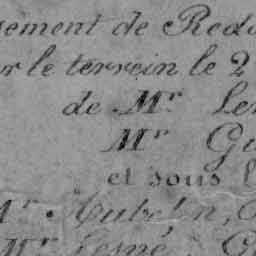 sement de Redu
r le terrein le 2
de Mr Le
Mr Gu
et sous l
Mr. Aubein,
Mr Lesné.